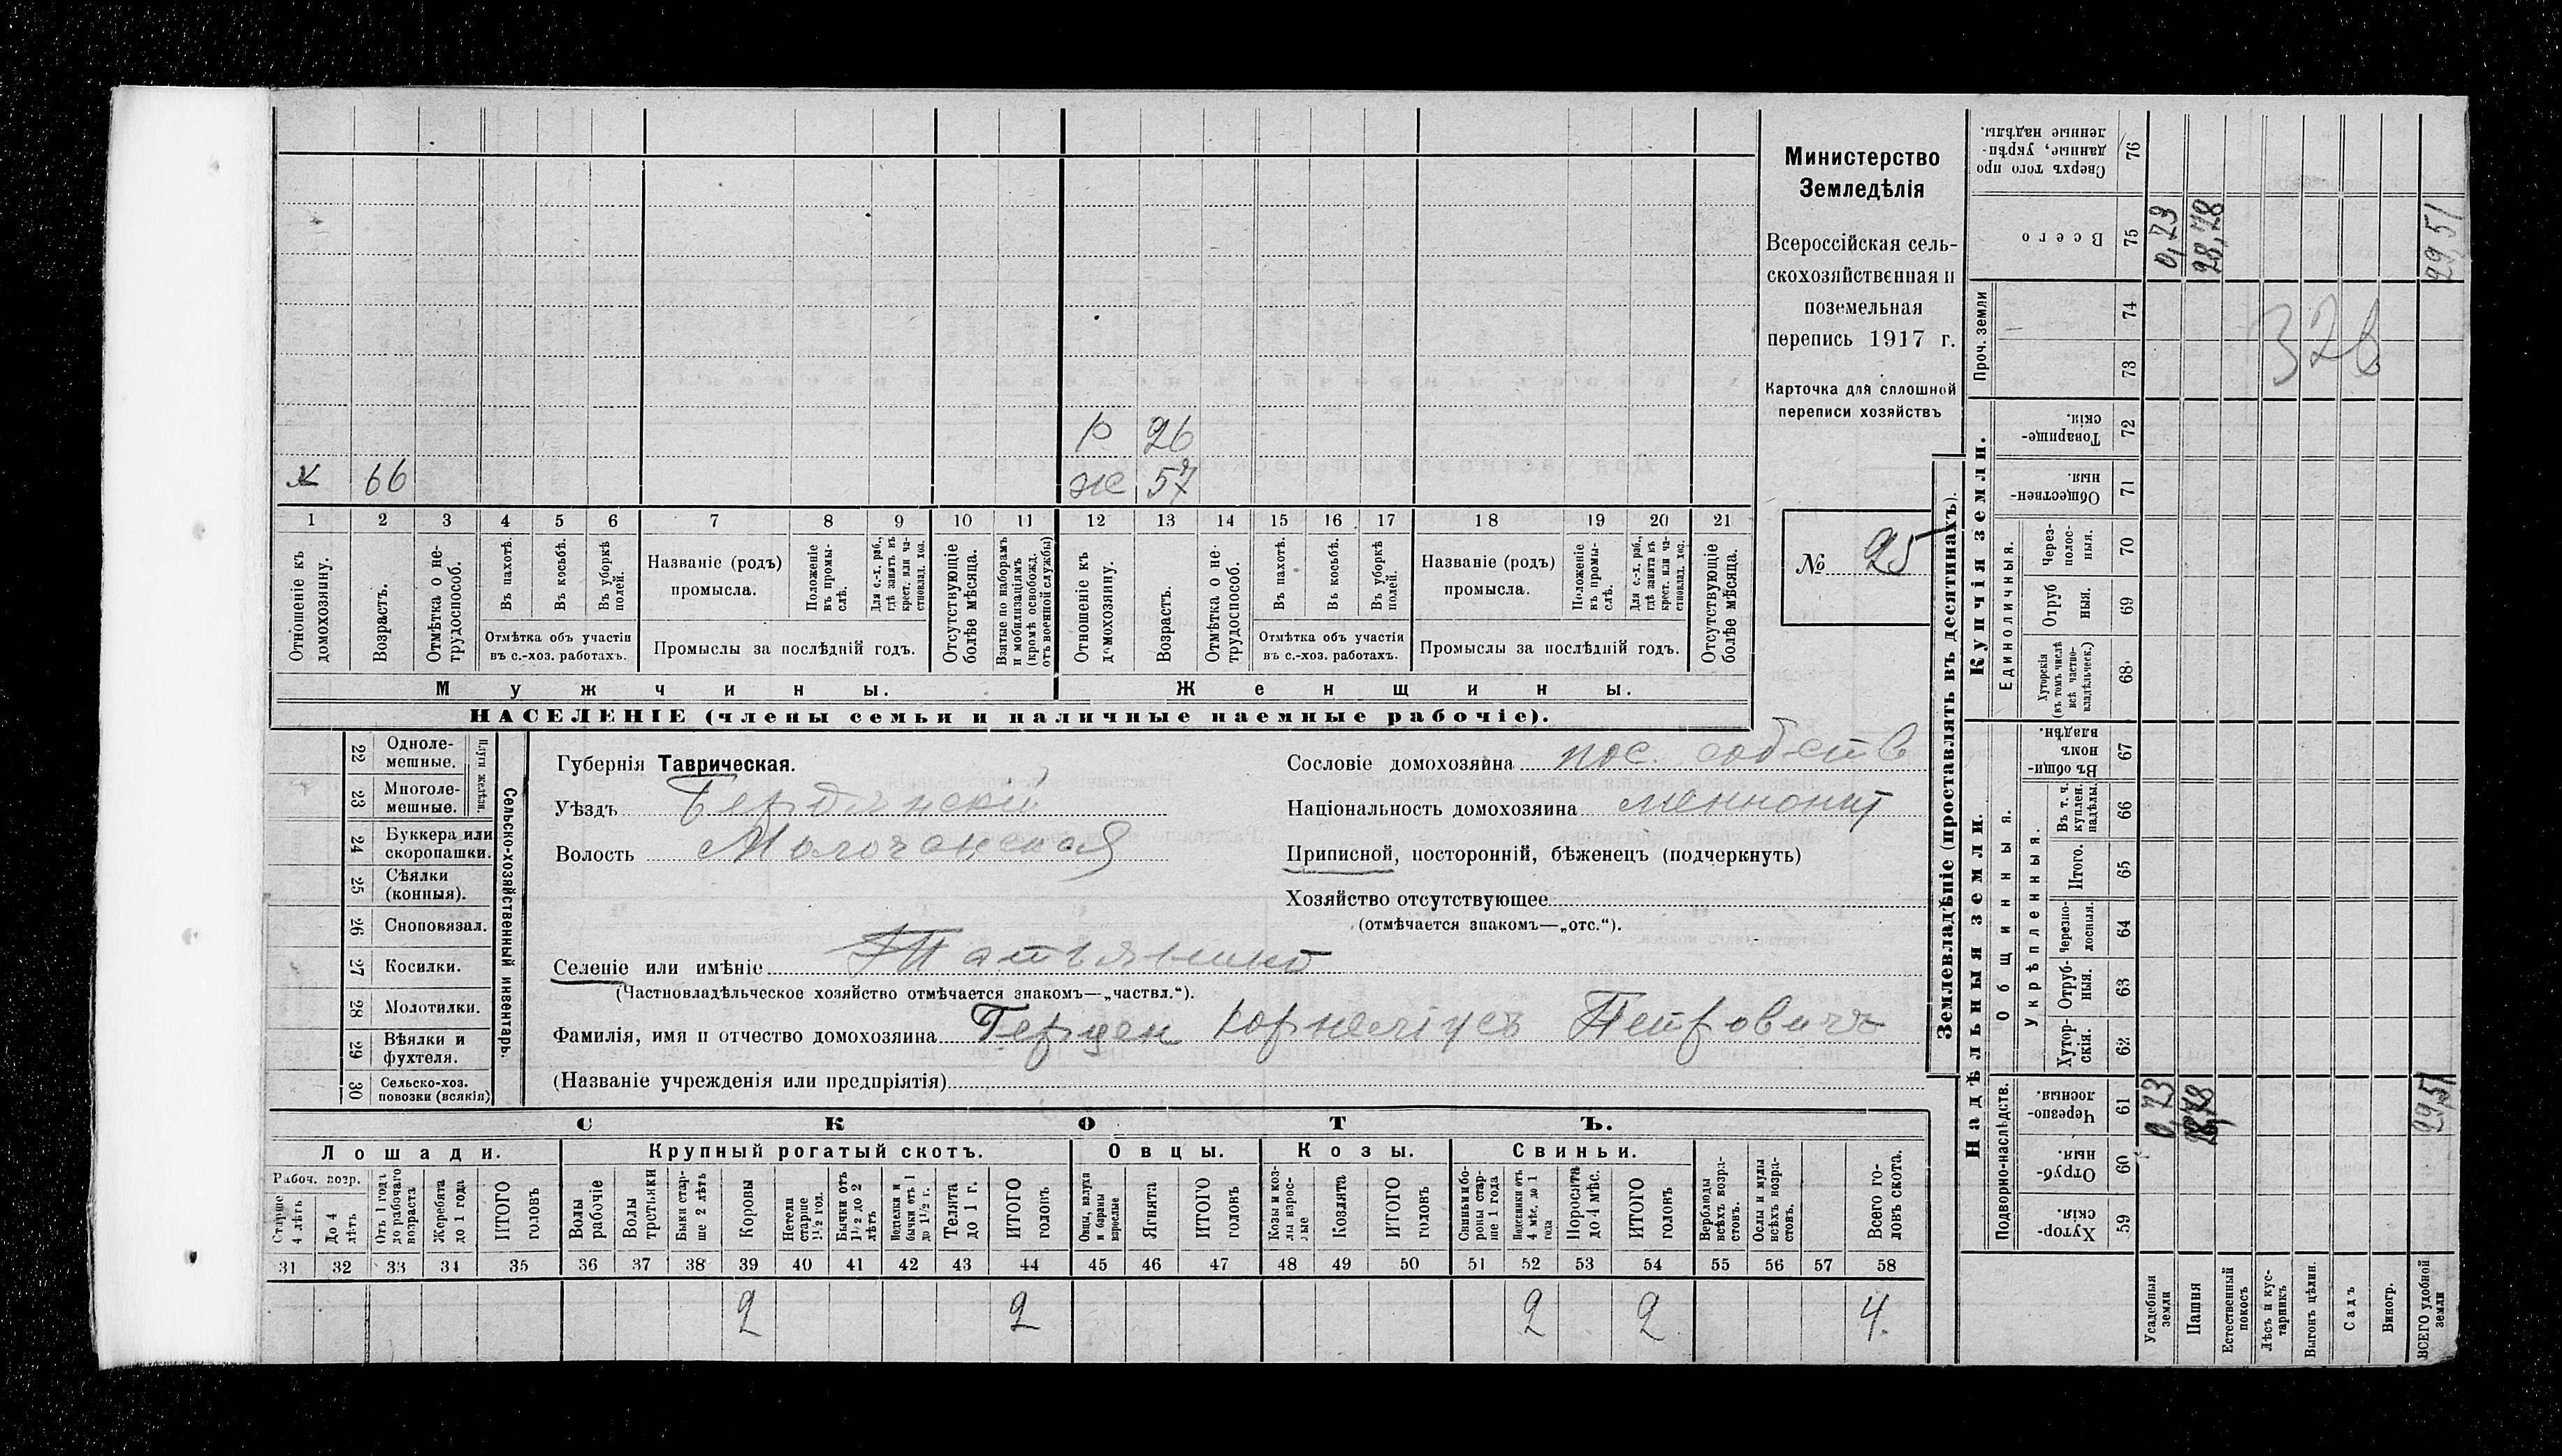 Р 26
х 66
ж 57
1 2 3 4 5 6 7 8 9 10 11 12 13 14 15 16 17 18 19 20 21
Отношеніе къ домохозяину.
Возрастъ.
Отмѣтка о не-трудоспособ.
Въ пахотѣ.
Въ косьбѣ.
Въ уборкѣ полей.
Отмѣтка объ участіи въ с.-хоз. работахъ.
Названіе (родъ) промысла.
Положеніе въ промы-слѣ.
Для с.-х. раб., гдѣ занятъ въ крест. или ча-стновлад. хоз.
Промыслы за послѣдній годъ.
Отсутствующіе болѣе мѣсяца.
Взятые по наборамъ и мобилизаціямъ (кромѣ освобожд. отъ военной службы)
Отношеніе къ домохозяину.
Возрастъ.
Отмѣтка о не-трудоспособ.
Въ пахотѣ.
Въ косьбѣ.
Въ уборкѣ полей.
Отмѣтка объ участіи въ с.-хоз. работахъ.
Названіе (родъ) промысла.
Положеніе въ промы-слѣ.
Для с.-х. раб., гдѣ занята въ крест. или ча-стновлад. хоз.
Промыслы за послѣдній годъ.
Отсутствующіе болѣе мѣсяца.
Мужчины.
Женщины.
НАСЕЛЕНІЕ (члены семьи и наличные наемные рабочіе).
Министерство
Земледѣлія
Всероссійская сель-
скохозяйственная и
поземельная
перепись 1917 г.
Карточка для сплошной
переписи хозяйствъ
№ 25
22 Одноле-мешные.
23 Многоле-мешные.
Плуги желѣзн.
24 Буккера или скоропашки.
25 Сѣялки (конныя).
26 Сноповязал.
27 Косилки.
28 Молотилки.
29 Вѣялки и фухтеля.
30 Сельско-хоз. повозки (всякія)
Сельско-хозяйственный инвентарь.
Губернія Таврическая.
Уѣздъ Бердянскій
Волость Молочанская
Сословіе домохозяина пос. собств
Національность домохозяина меннонит
Приписной, посторонній, бѣженецъ (подчеркнуть)
Хозяйство отсутствующее
(отмѣчается знакомъ—„отс.“).
Селеніе или имѣніе
(Частновладѣльческое хозяйство отмѣчается знакомъ—„частвл.“).
Фамилія, имя и отчество домохозяина Герцен Корнеліусъ Петровичъ
(Названіе учрежденія или предпріятія)
СКОТЪ.
Лошади.
Крупный рогатый скотъ.
Овцы.
Козы.
Свиньи.
Рабоч. возр.
Старше 4 лѣтъ
До 4 лѣтъ
Отъ 1 года до рабочаго возраста
Жеребята до 1 года
ИТОГО головъ
Волы рабочіе
Волы третьяки
Быки стар-ше 2 лѣтъ
Коровы
Нетели старше 1½ год.
Бычки отъ 1½ до 2 лѣтъ
Подтелки и бычки отъ 1 до 1½ г.
Телята до 1 г.
ИТОГО головъ
Овцы, валухи и бараны взрослые
Ягнята
ИТОГО головъ
Козы и коз-лы взрос-лые
Козлята
ИТОГО головъ
Свиньи и бо-ровы стар-ше 1 года
Подсвинки отъ 4 мѣс. до 1 года
Поросята до 4 мѣс.
ИТОГО головъ
Верблюды всѣхъ возра-стовъ.
Ослы и мулы всѣхъ возра-стовъ.
Всего го-ловъ скота.
31 32 33 34 35 36 37 38 39 40 41 42 43 44 45 46 47 48 49 50 51 52 53 54 55 56 57 58
2 2 2 2 4.
Землевладѣніе (проставлять въ десятинахъ).
Надѣльныя земли.
Купчія земли.
Проч. земли
Подворно-наслѣдств.
Общинныя.
Укрѣпленныя.
Единоличныя.
Хутор-скія. 59
Отруб-ныя. 60
Черезпо-лосныя. 61
Хутор-скія. 62
Отруб-ныя. 63
Черезпо-лосныя. 64
Итого. 65
Въ т. ч. куплен. надѣлы. 66
Въ общин-номъ владѣн. 67
Хуторскія (въ томъ числѣ всѣ частно-владѣльческ.) 68
Отруб ныя. 69
Через-полос-ныя. 70
Обществен-ныя 71
Товарище-скія. 72
73
74
Всего 75
Сверхъ того про данные, укрѣп-ленные надѣлы. 76
Усадебныя земли
0,73 0,73
Пашня
28,78 28,78
Естественный покосъ
Лѣсъ и кус-тарникъ
Выгонъ цѣлин.
Садъ
Виногр.
ВСЕГО удобной земли
29,51 29,51